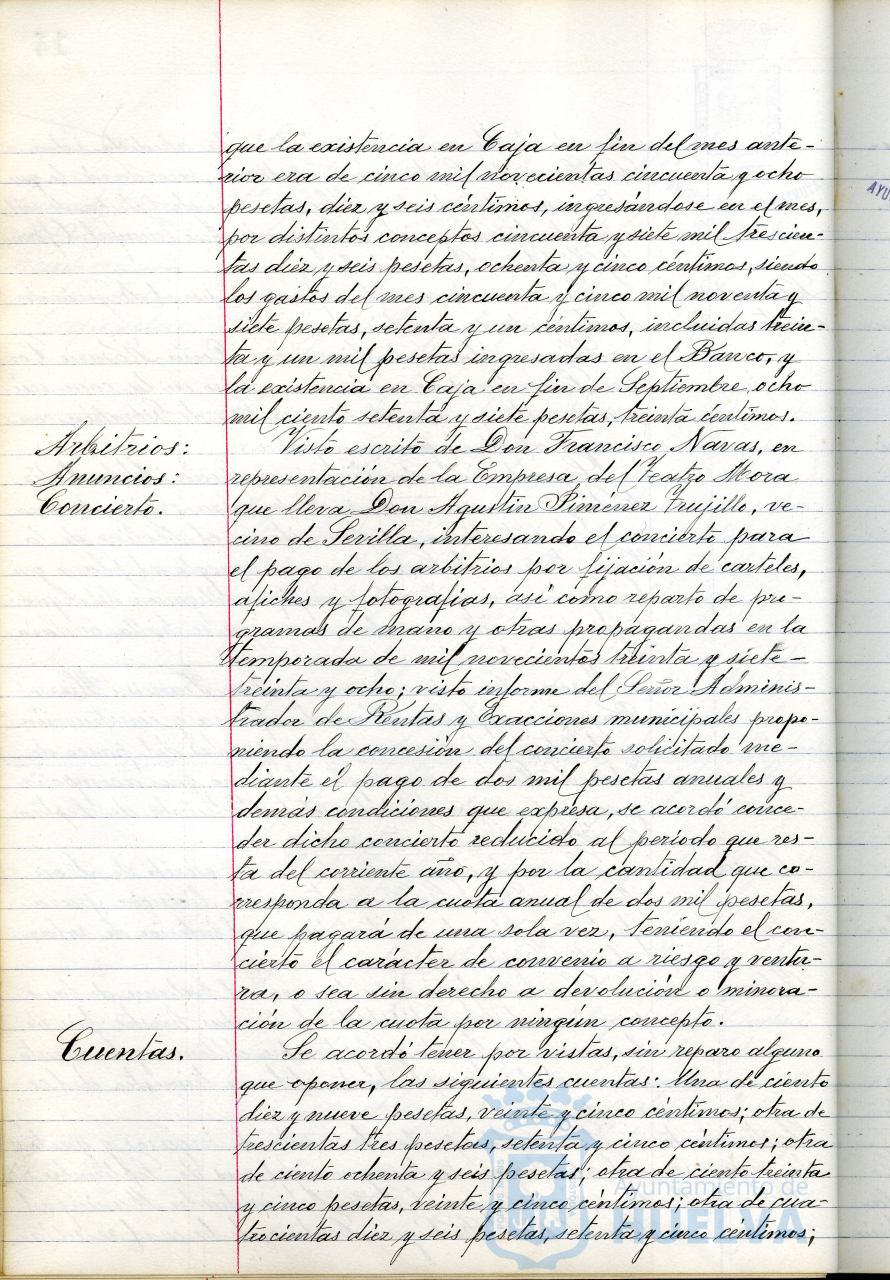 que la existencia en Caja en fin del mes ante-
rior era de cinco mil novecientas cincuenta y ocho
pesetas, diéz y seis céntimos, ingresándose en el mes,
por distintos conceptos cincuenta y siete mil trescien-
tas diéz y seis pesetas, ochenta y cinco céntimos, siendo
los gastos del mes cincuenta y cinco mil noventa y
siete pesetas, setenta y un céntimos, incluidas trein-
ta y un mil pesetas ingresadas en el Banco, y
la existencia en Caja en fin de Septiembre, ocho
mil ciento setenta y siete pesetas, treinta céntimos.
Arbitrios:
Anuncios:
Concierto.
Visto escrito de Don Francisco Navas, en
representación de la Empresa del Teatro Mora
que lleva Don Agustín Jiménez Trujillo, ve-
cino de Sevilla, interesando el concierto para
el pago de los arbitrios por fijación de carteles,
afiches y fotografías, así como reparto de pro-
gramas de mano y otras propagandas en la
temporada de mil novecientos treinta y siete-
treinta y ocho; visto informe del Señor Adminis-
trador de Rentas y Exacciones municipales propo-
niendo la concesión del concierto solicitado me-
diante el pago de dos mil pesetas anuales y
demás condiciones que expresa, se acordó conce-
der dicho concierto reducido al período que res-
ta del corriente año, y por la cantidad que co-
rresponda a la cuota anual de dos mil pesetas,
que pagará de una sola vez, teniendo el con-
cierto el carácter de convenio a riesgo y ventu-
ra, o sea sin derecho a devolución o minora-
ción de la cuota por ningún concepto.
Cuentas.
Se acordó tener por vistas, sin reparo alguno
que oponer, las siguientes cuentas: Una de ciento
diéz y nueve pesetas, veinte y cinco céntimos; otra de
trescientas tres pesetas, setenta y cinco céntimos; otra
de ciento ochenta y seis pesetas; otra de ciento treinta
y cinco pesetas, veinte y cinco céntimos; otra de cua-
trocientas diéz y seis pesetas, setenta y cinco céntimos;
Ayuntamiento de
HUELVA
AYU